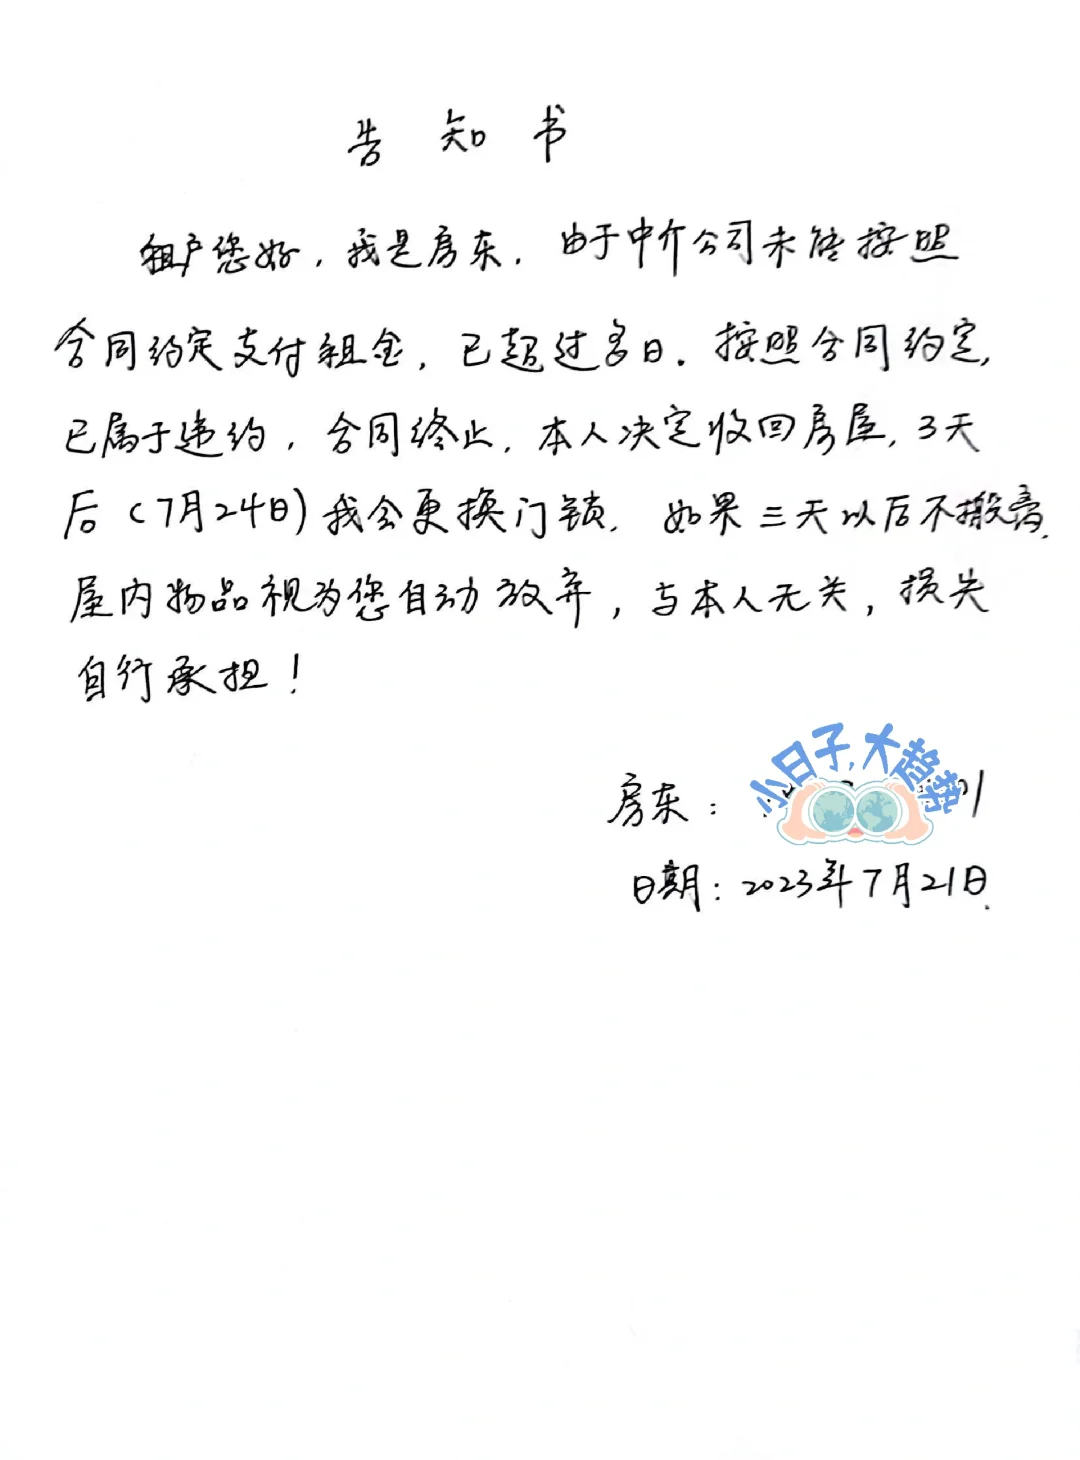 告知书
租户您好，我是房东，由于中介公司未能按照
合同约定支付租金，已超过多日．按照合同约定，
已属于违约，合同终止，本人决定收回房屋，3天
后（7月24日）我会更换门锁，如果三天以后不搬离，
屋内物品视为您自动放弃，与本人无关，损失
自行承担！
小日子，大趋势
房东：
日期：2023年7月21日．